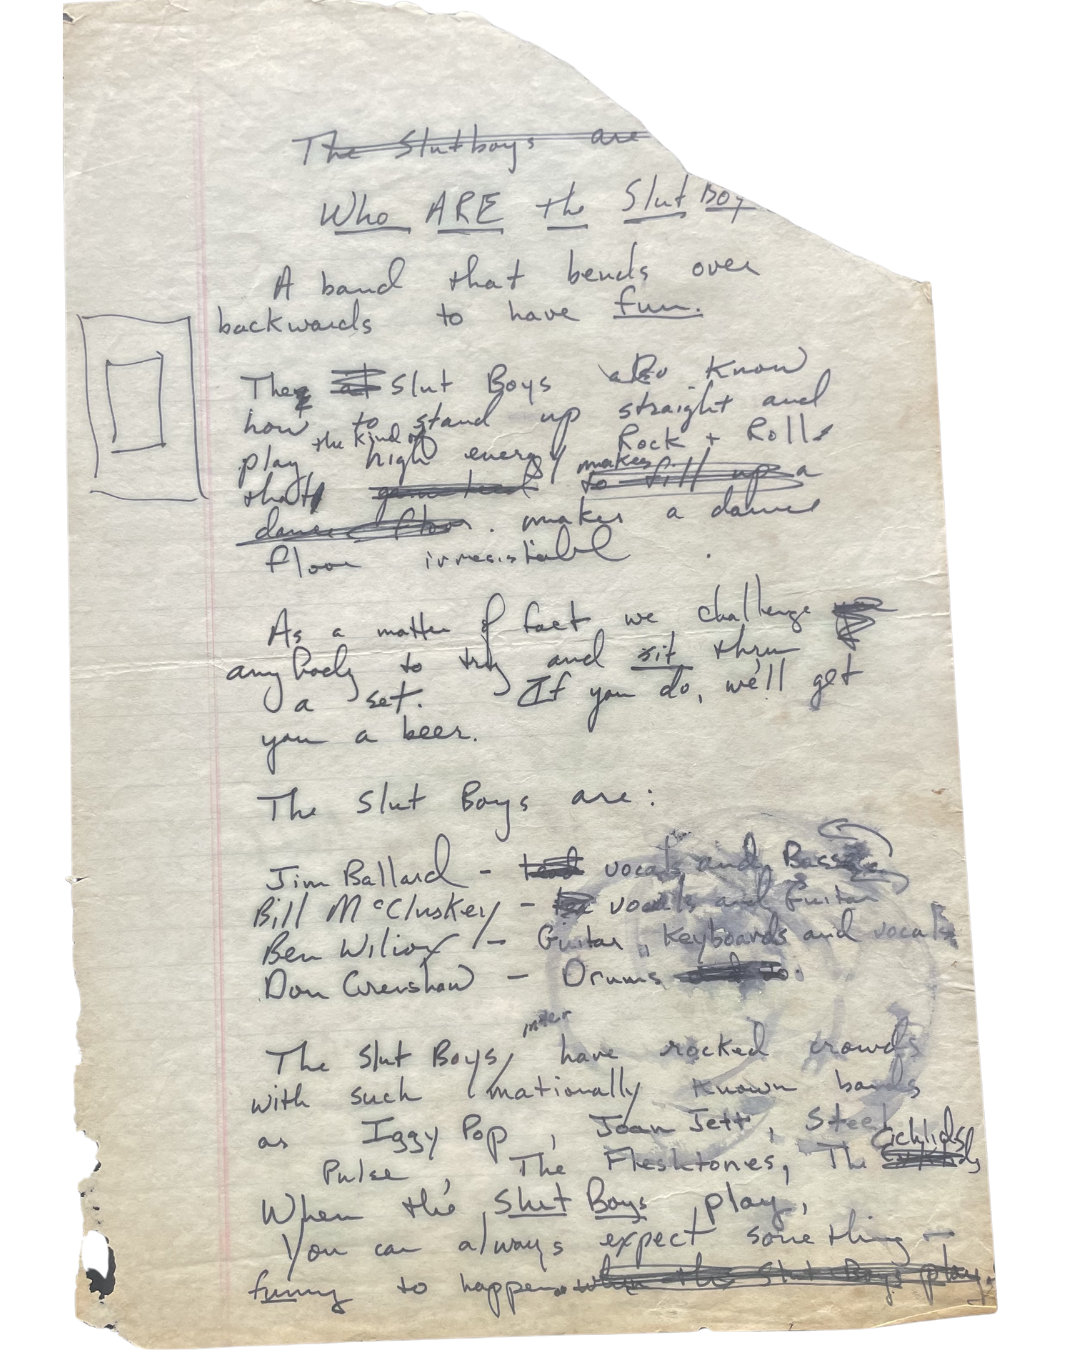 The Slutboys are
Who ARE the Slut Boy
A band that bends over
backwards to have fun.
The Slut Boys also know
how to stand up straight and
play the kind of high energy Rock + Roll
that makes to fill up a
dance floor. makes a dance
floor irresistabel
As a matter of fact we challenge
anybody to try and sit thru
a set. If you do, we'll get
you a beer.
The Slut Boys are:
Jim Ballard - lead vocals and Bass
Bill McCluskey - vocals and Guitar
Ben Wilcox - Guitar, Keyboards and vocals
Don Crenshaw - Drums
The Slut Boys, have rocked crowds
with such internationally known bands
as Iggy Pop, Joan Jett, Steel
Pulse, The Fleshtones, The Cichlids
When the Slut Boys play,
You can always expect something
funny to happen when the Slut Boys play.